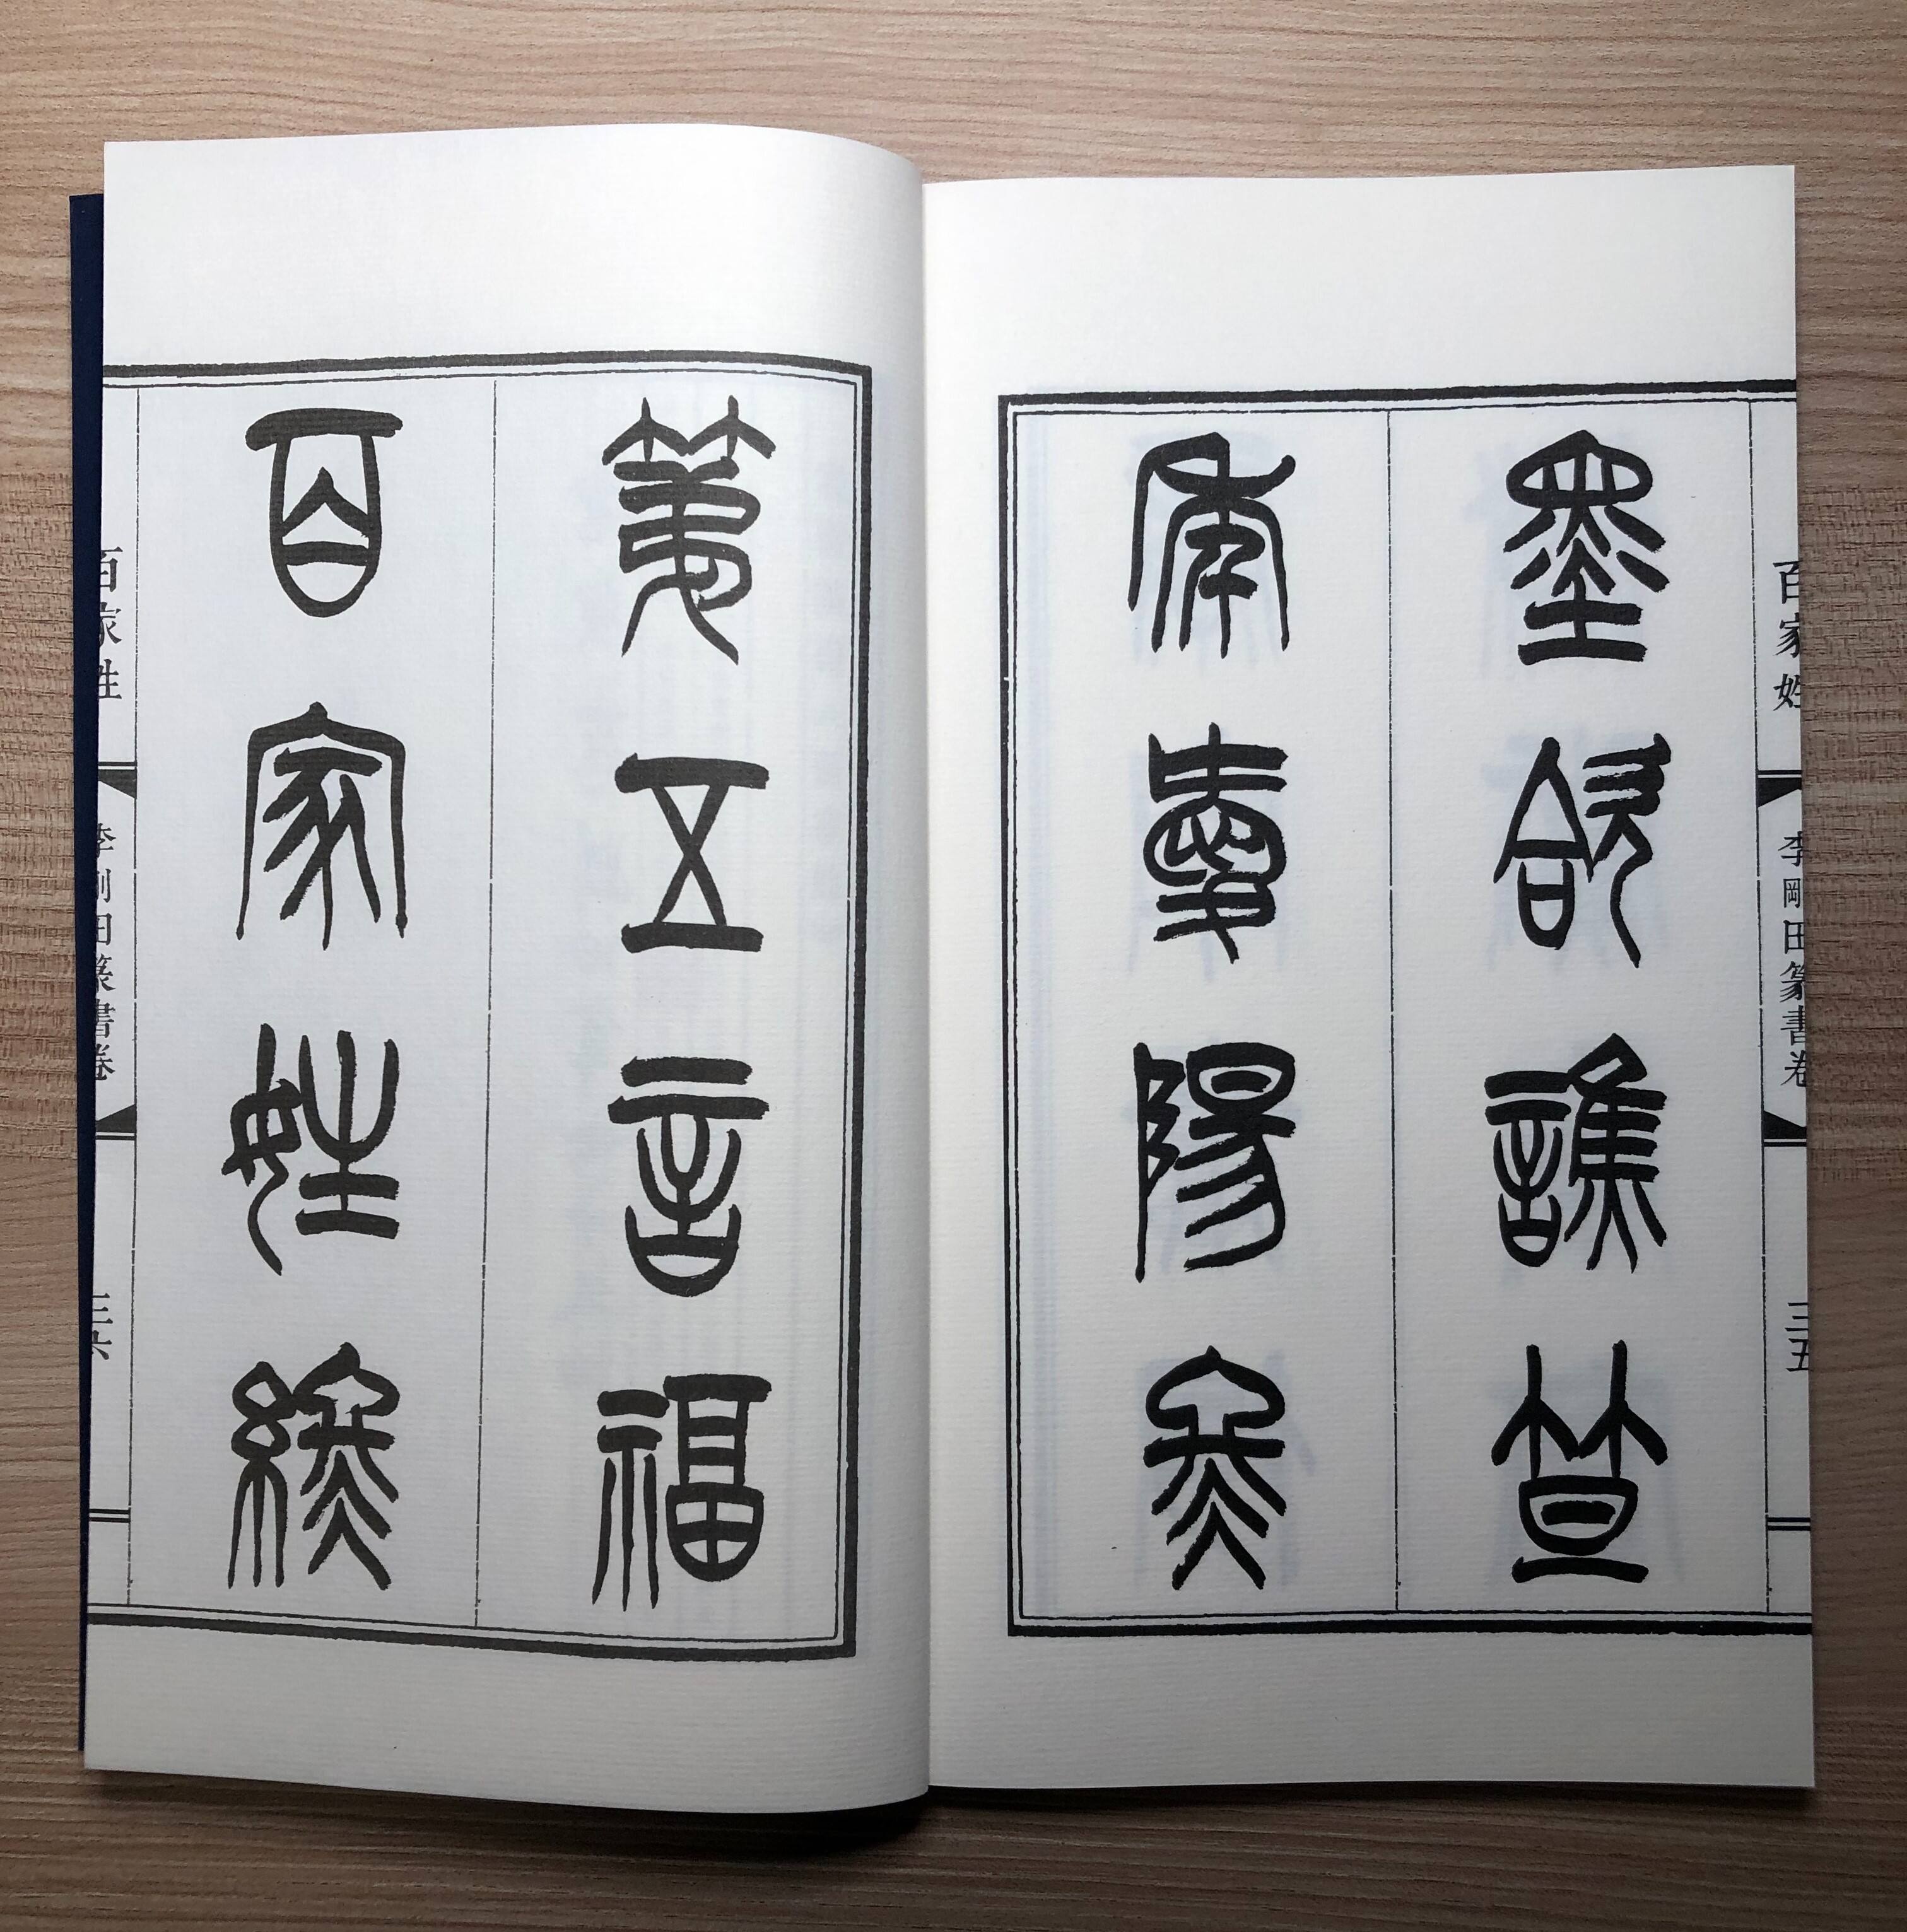 百家姓
李剛田篆書卷
三五
墨哈譙笪
年愛陽佟
第五言福
百家姓終
百家姓
李剛田篆書卷
三六